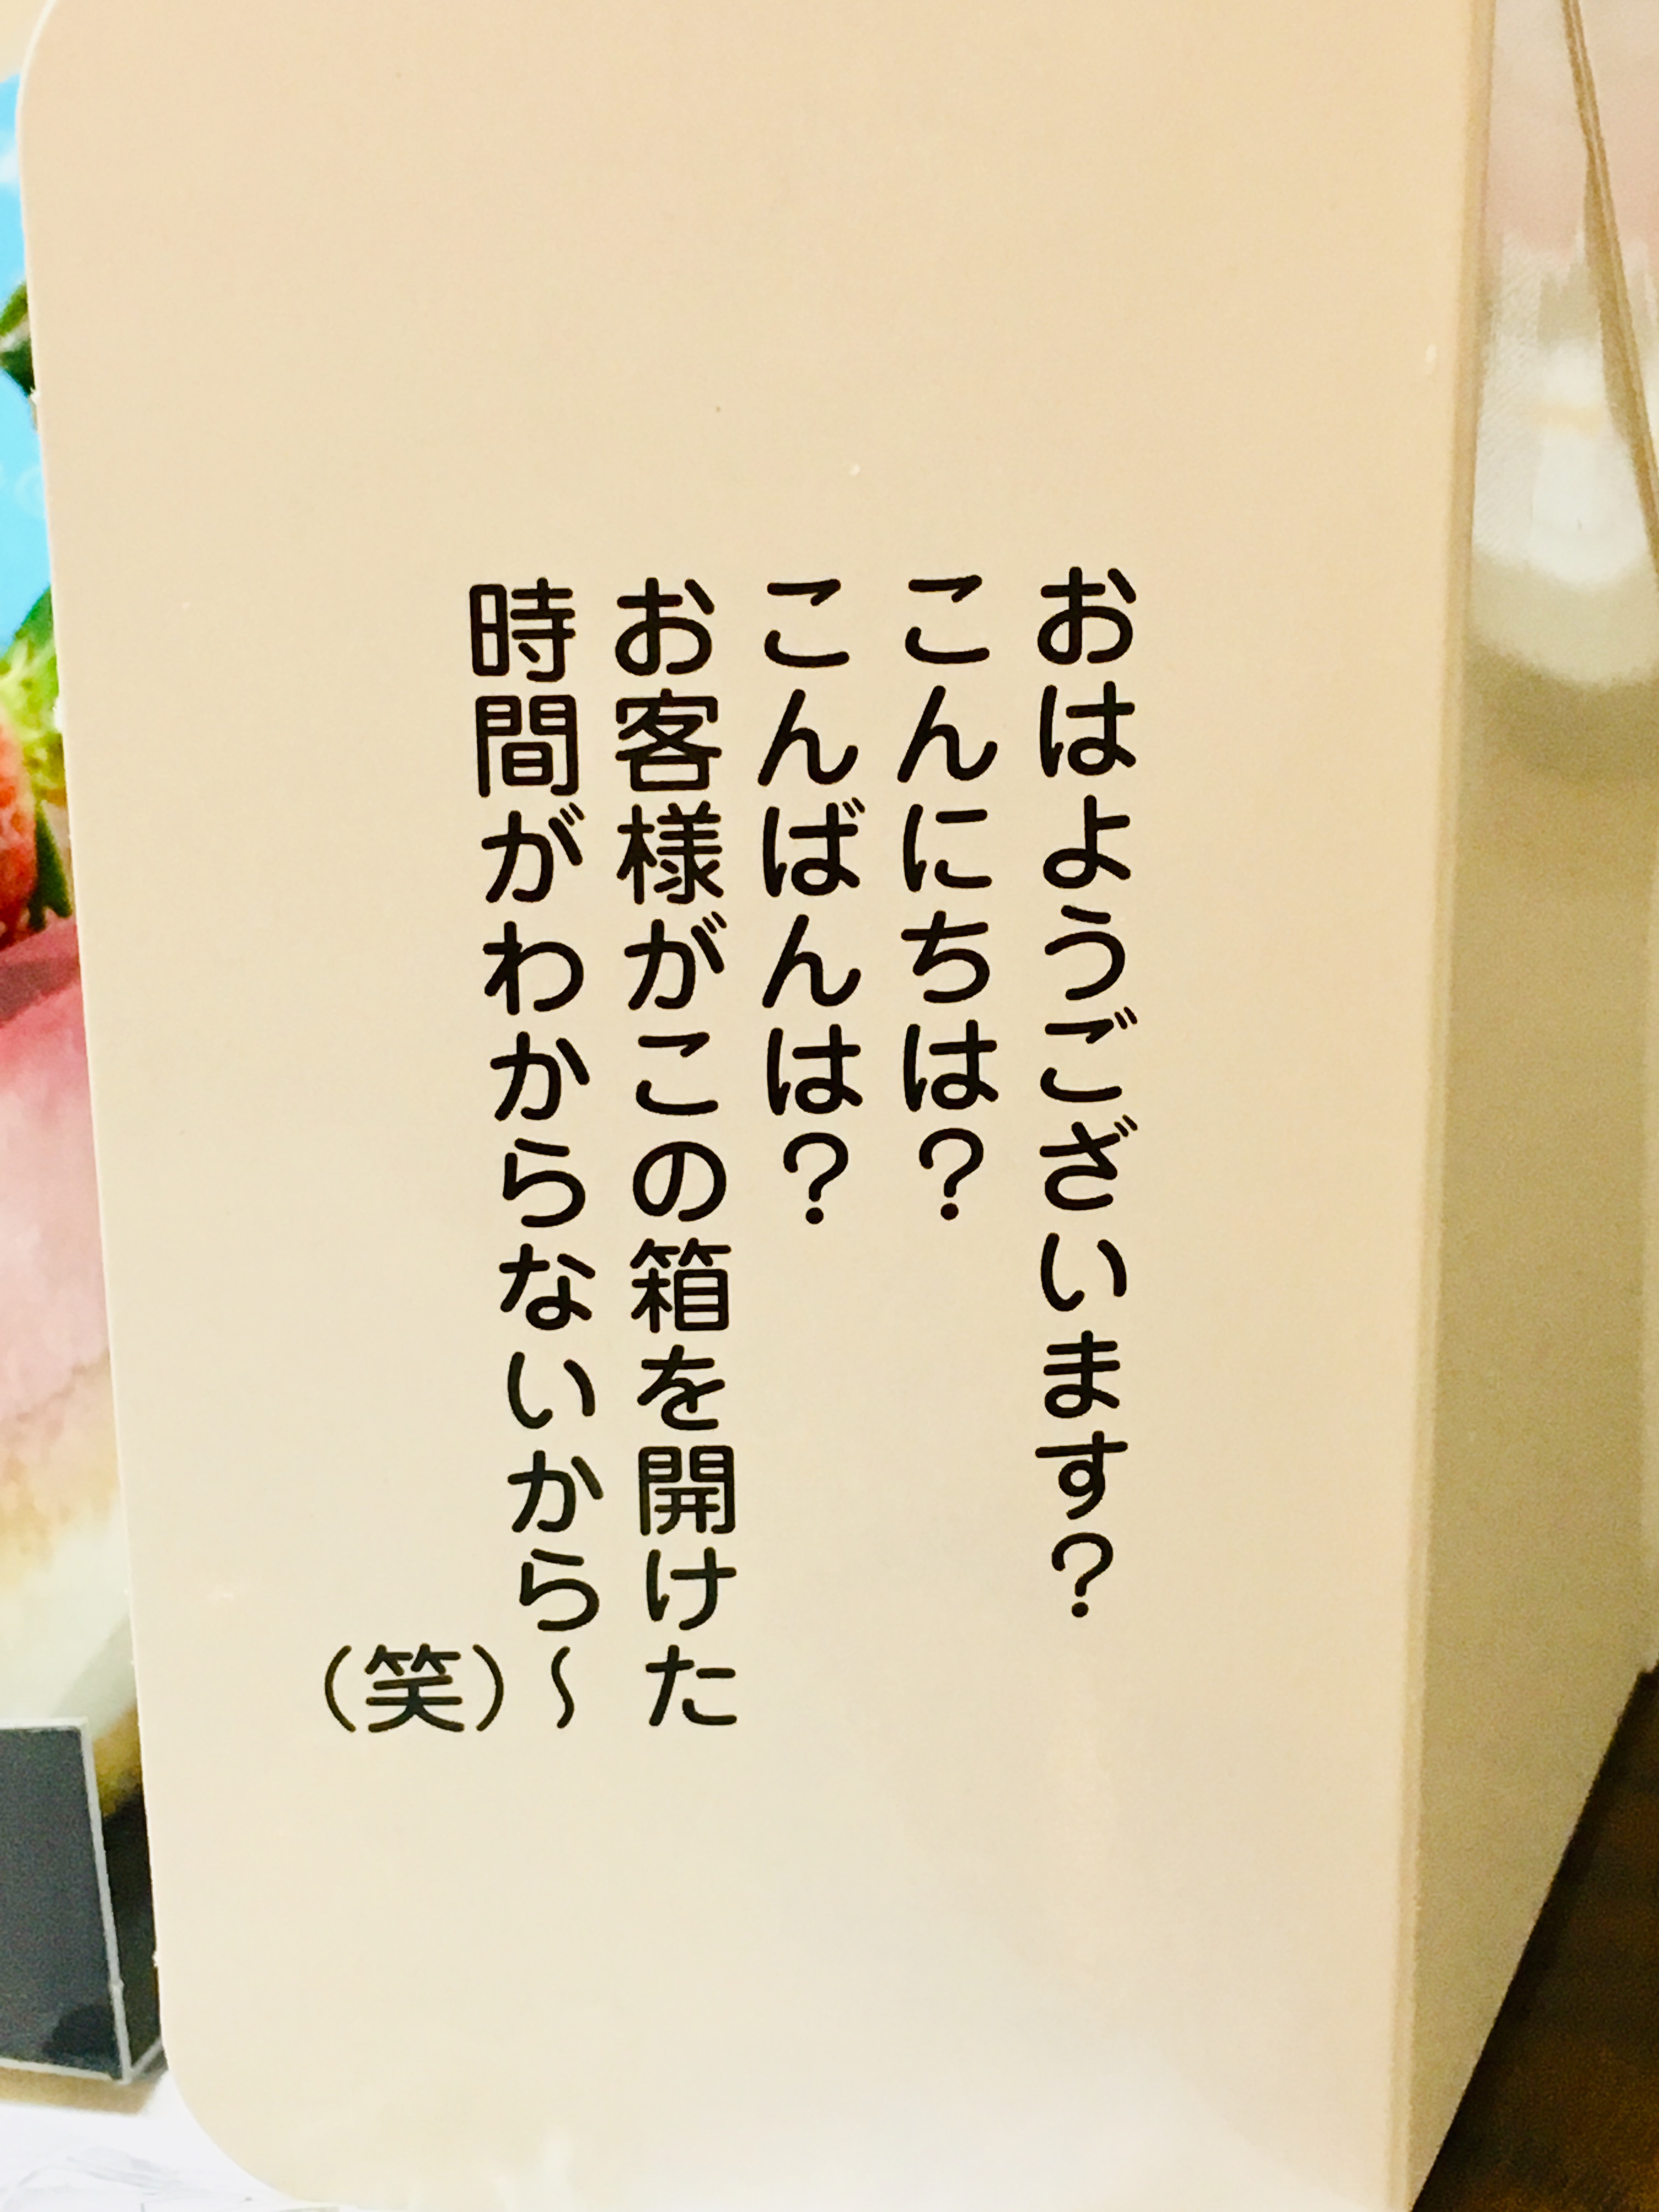 おはようございます？
こんにちは？
こんばんは？
お客様がこの箱を開けた
時間がわからないから〜
（笑）